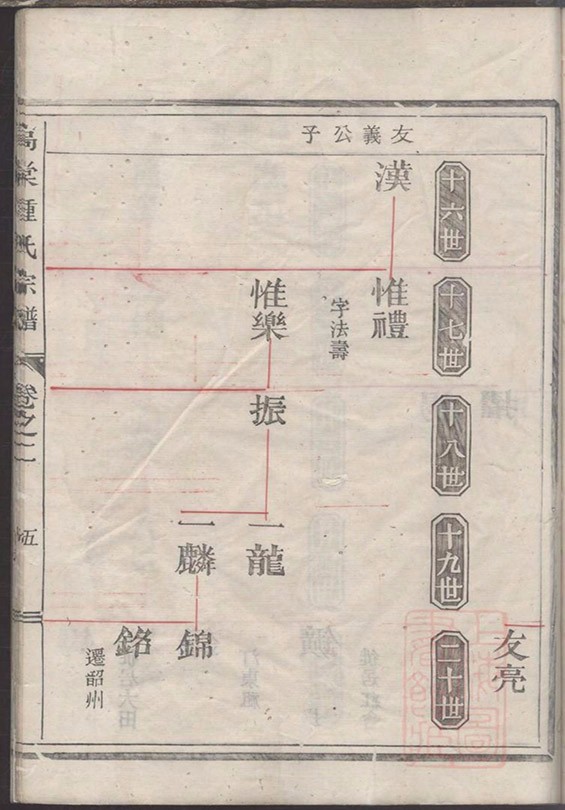 友亮
十六世
十七世
十八世
十九世
二十世
友義公子
漢
惟禮
字法壽
惟樂
振
一龍
一麟
錦
銘
遷韶州
高棠鍾氏宗譜
卷之二
五